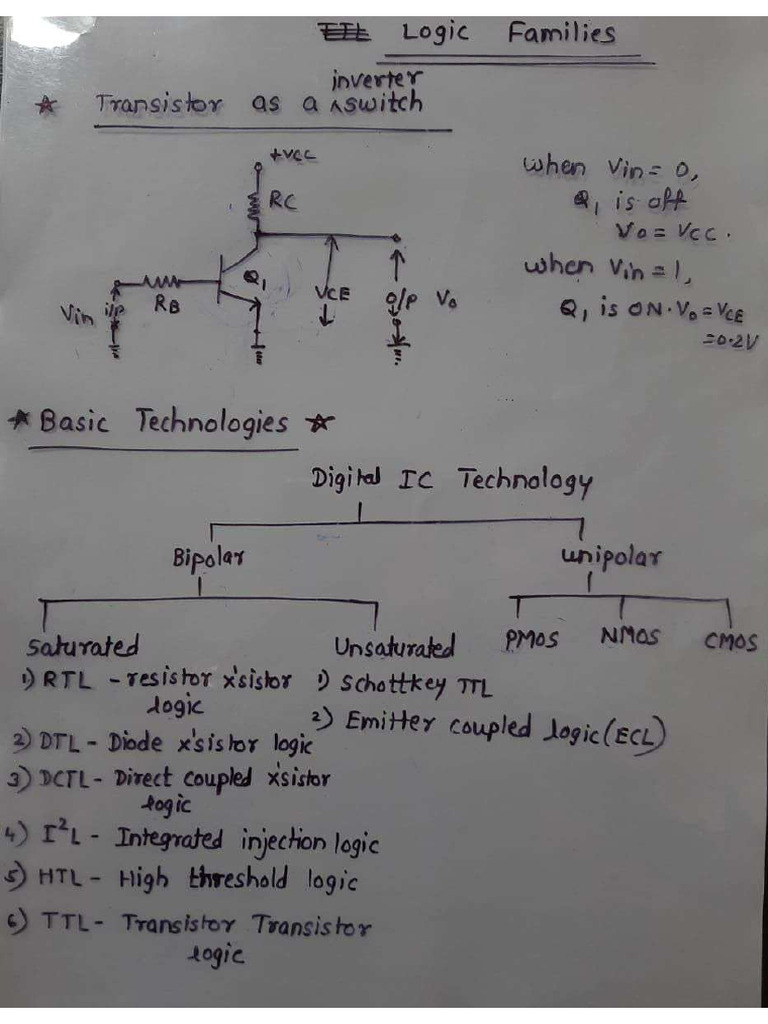 TTL Logic Families
inverter
* Transistor as a ^switch
+VCC
RC
Q1
RB
Vin i/p
VCE
o/p Vo
when Vin = 0,
Q1 is off
Vo = VCC.
when Vin = 1,
Q1 is ON. Vo = VCE
= 0.2V
* Basic Technologies *
Digital IC Technology
Bipolar unipolar
saturated Unsaturated PMOS NMOS CMOS
1) RTL - resistor x'sistor
logic
2) DTL - Diode x'sistor logic
3) DCTL - Direct coupled x'sistor
logic
4) I²L - Integrated injection logic
5) HTL - High threshold logic
6) TTL - Transistor Transistor
logic
1) Schottkey TTL
2) Emitter coupled logic (ECL)